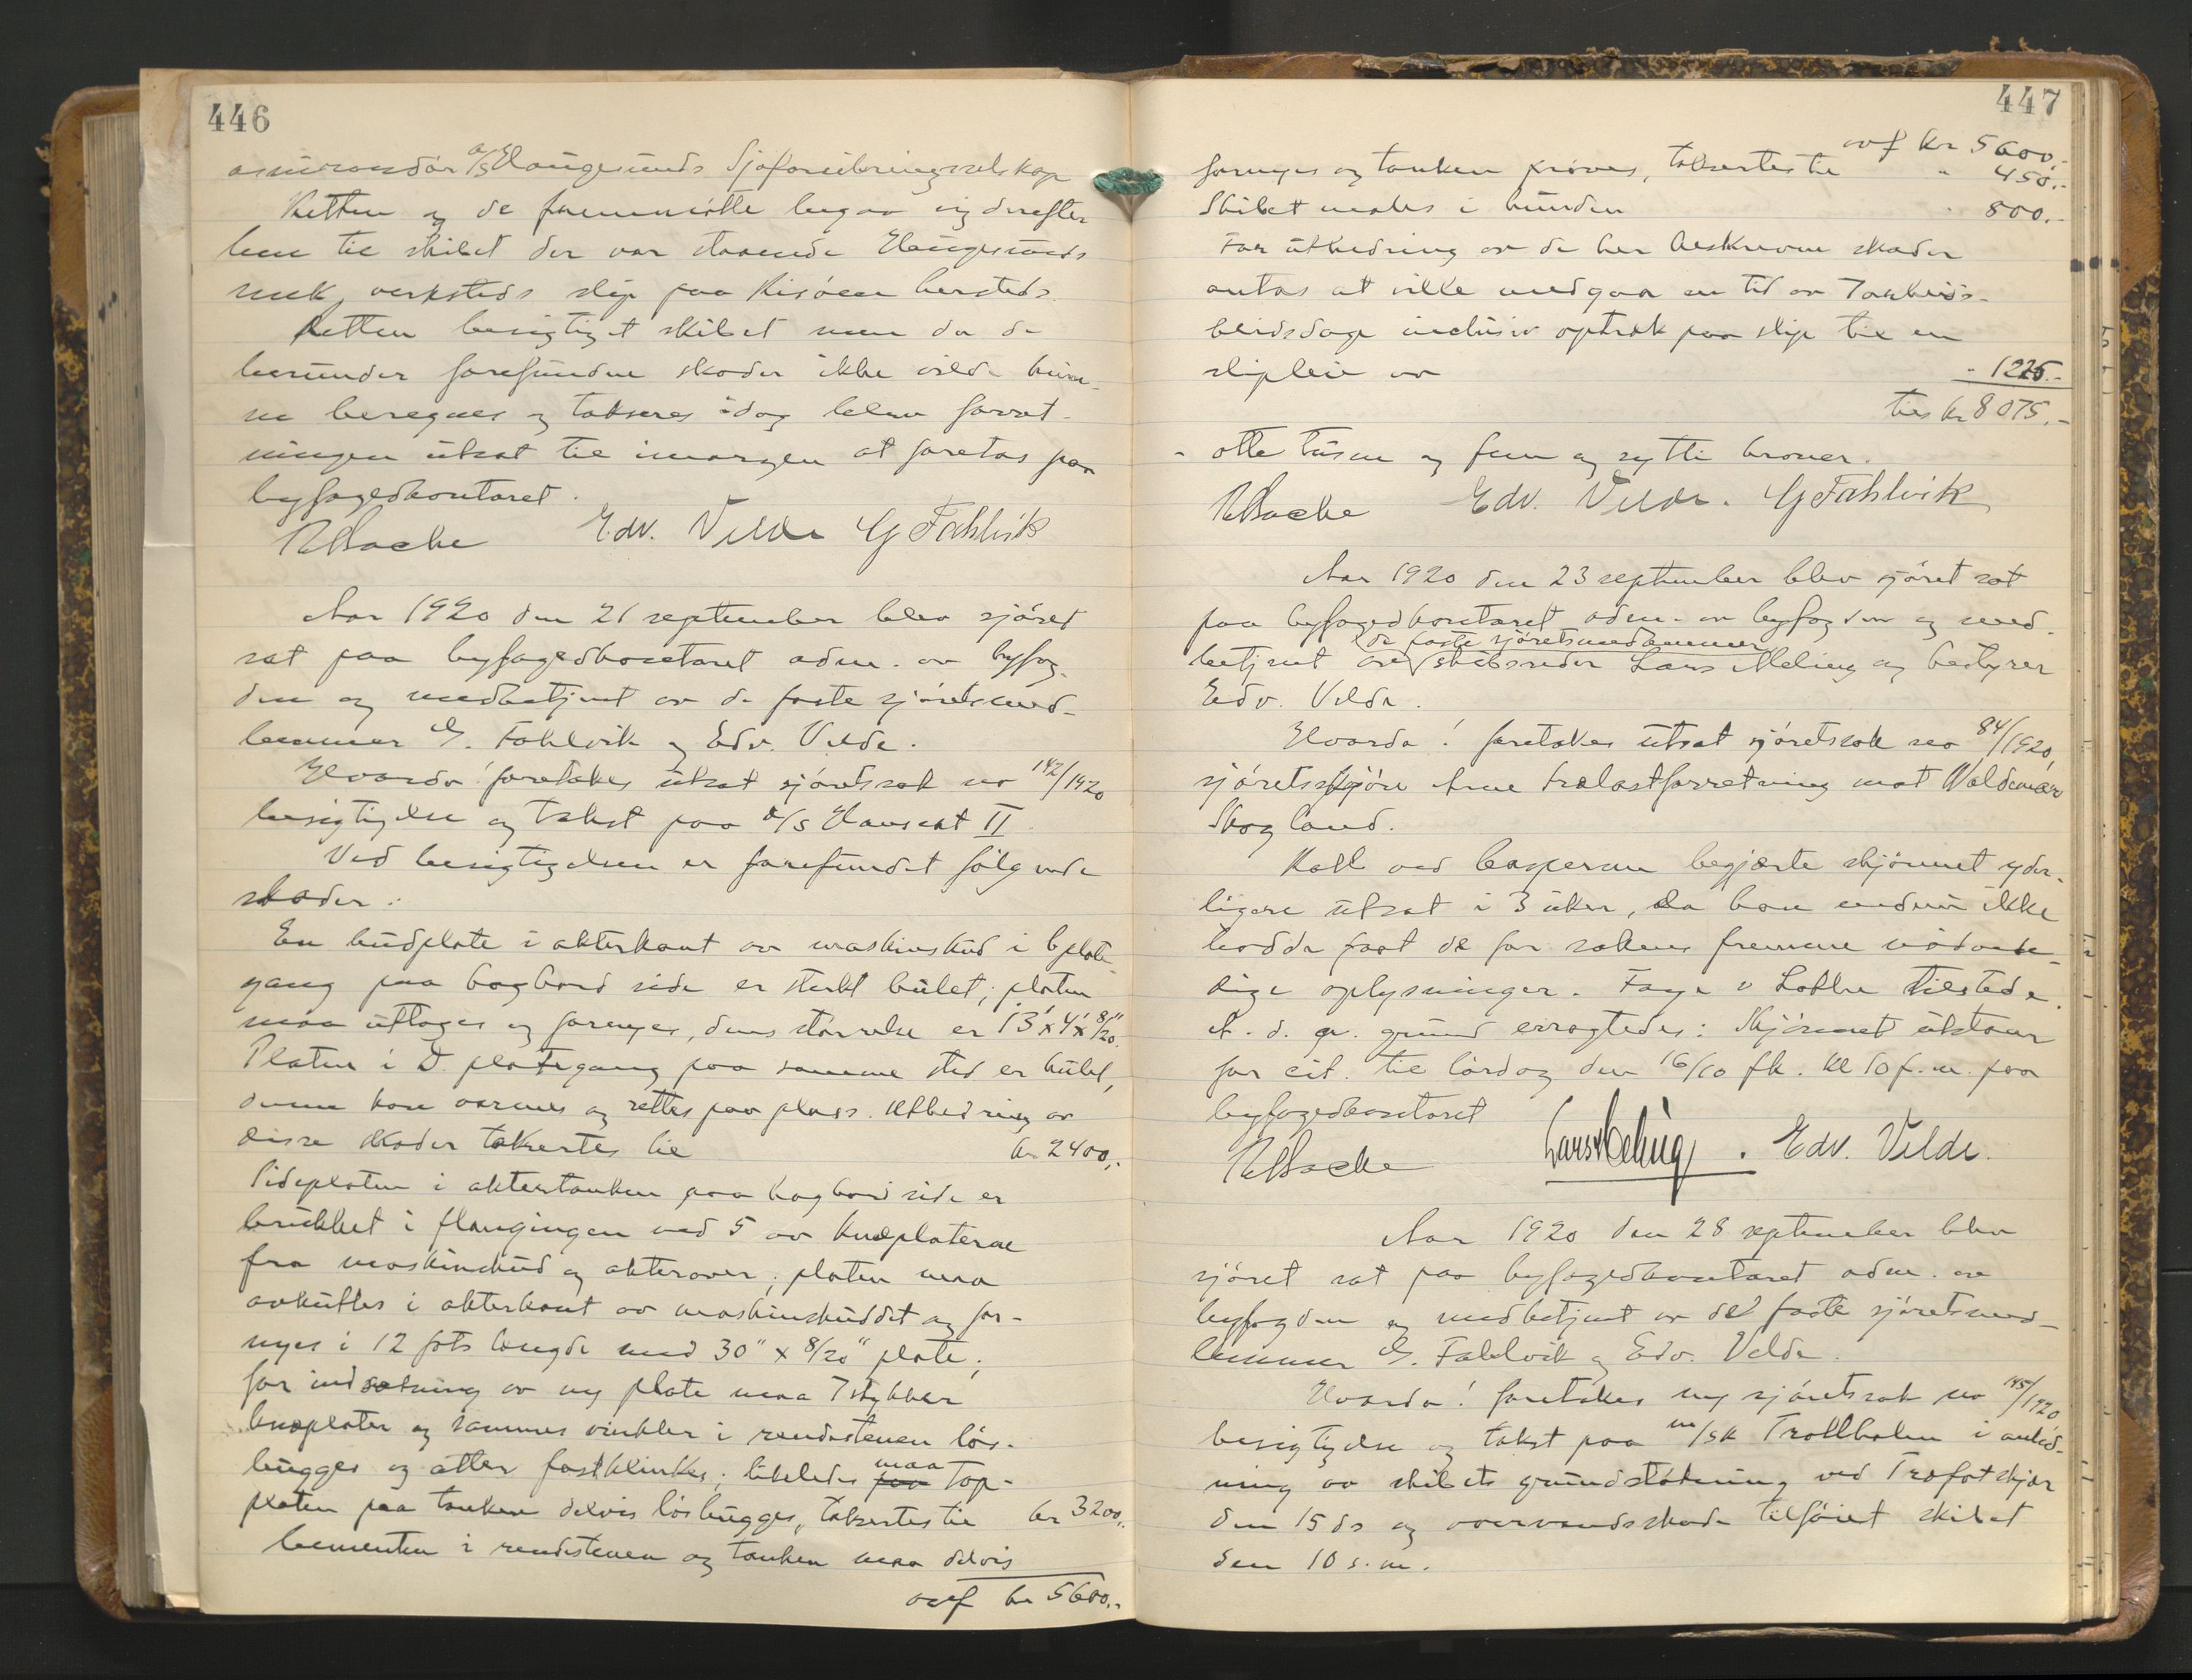 446
assurandør A/S Haugesunds Sjøforsikringsselskap
Retten og de fremmøtte begav sig derefter
hen til skibet der var staaende Haugesunds
mek. verksteds slip paa Risøen hersteds.
Retten besigtiget skibet men da de
herunder forefundne skader ikke vilde kun-
ne beregnes og takseres idag blev forret-
ningen utsat til imorgen at foretas paa
byfogedkontoret.
Edv. Velde G Fahlvik
Aar 1920 den 21 september blev sjøret
sat paa byfogedkontoret adm. av byfog-
den og medbetjent av de faste sjøretsmed-
lemmer G. Fahlvik og Edv. Velde.
Hvorda! foretokes utsat sjøretssak no 142/1920
besigtigelse og takst paa D/S Hanseat II.
Ved besigtigelsen er forefundet følgende
skader:
En hudplate i akterkant av maskinskud i C plate
gang paa bagbord side er sterkt bulet; platen
maa uttages og fornyes, dens størrelse er 13' x 4' x 8/20".
Platen i D plategang paa samme sted er bulet,
denne kan varmes og rettes paa plass. Utbedring av
disse skader taksertes til kr 2400,-
Sideplaten i aktertanken paa bagbord side er
brukket i flangingen ved 5 av knæplaterne
fra maskinskud og akterover; platen maa
avkuttes i akterkant av maskinskuddet og for-
nyes i 12 fots længde med 30" x 8/20" plate;
for indsætning av ny plate maa 7 stykker
knæplater og sammes vinkler i rendestenen løs-
hugges og atter fastklinkes; likeledes maa Top-
platen paa tanken delvis løshugges, taksertes til kr 3200,-
Cementen i rendestenen og tanken maa delvis
ovf kr 5600.-
447
ovf kr 5600,-
fornyes og tanken prøves, taksertes til " 450.-
Skibet males i bunden " 800.-
For utbedring av de her beskrevne skader
antas at ville medgaa en tid av 7 arbeids-
beidsdage inclusiv optræk paa slip til en
slipleie av - 1225.-
tils kr 8075.-
- otte tusen og fem og sytti kroner.
Edv. Velde. G Fahlvik
Aar 1920 den 23 september blev sjøret sat
paa byfogedkontoret adm. av byfogden og med-
de faste sjøretsmedlemmer
betjent av skibsreder Lars Meling og bestyrer
Edv. Velde.
Hvorda! foretokes utsat sjøretssak no 84/1920,
sjøretsskjøn Arne trælastforretning mot Waldemar
Skogland.
Kall ved Caspersen begjærte skjønnet yder-
ligere utsat i 3 uker, da han endnu ikke
hadde faat de for sakens fremme nødven-
dige oplysninger. Faye v Lothe tilstede.
A. d. gr. grund erragtedes: Skjønnet utstaar
for eit. til lørdag den 16/10 fk. kl 10 f.m. paa
byfogedkontoret
Lars Meling. Edv. Velde.
Aar 1920 den 28 september blev
sjøret sat paa byfogedkontoret adm. av
byfogden og medbetjent av de faste sjøretsmed-
lemmer G. Fahlvik og Edv. Velde.
Hvorda! foretokes ny sjøretssak no 145/1920
besigtigelse og takst paa m/sk Trollholm i anled-
ning av skibets grundstøtning ved Træfotskjær
den 15 ds og overvandsskade tilføiet skibet
den 10 s.m.